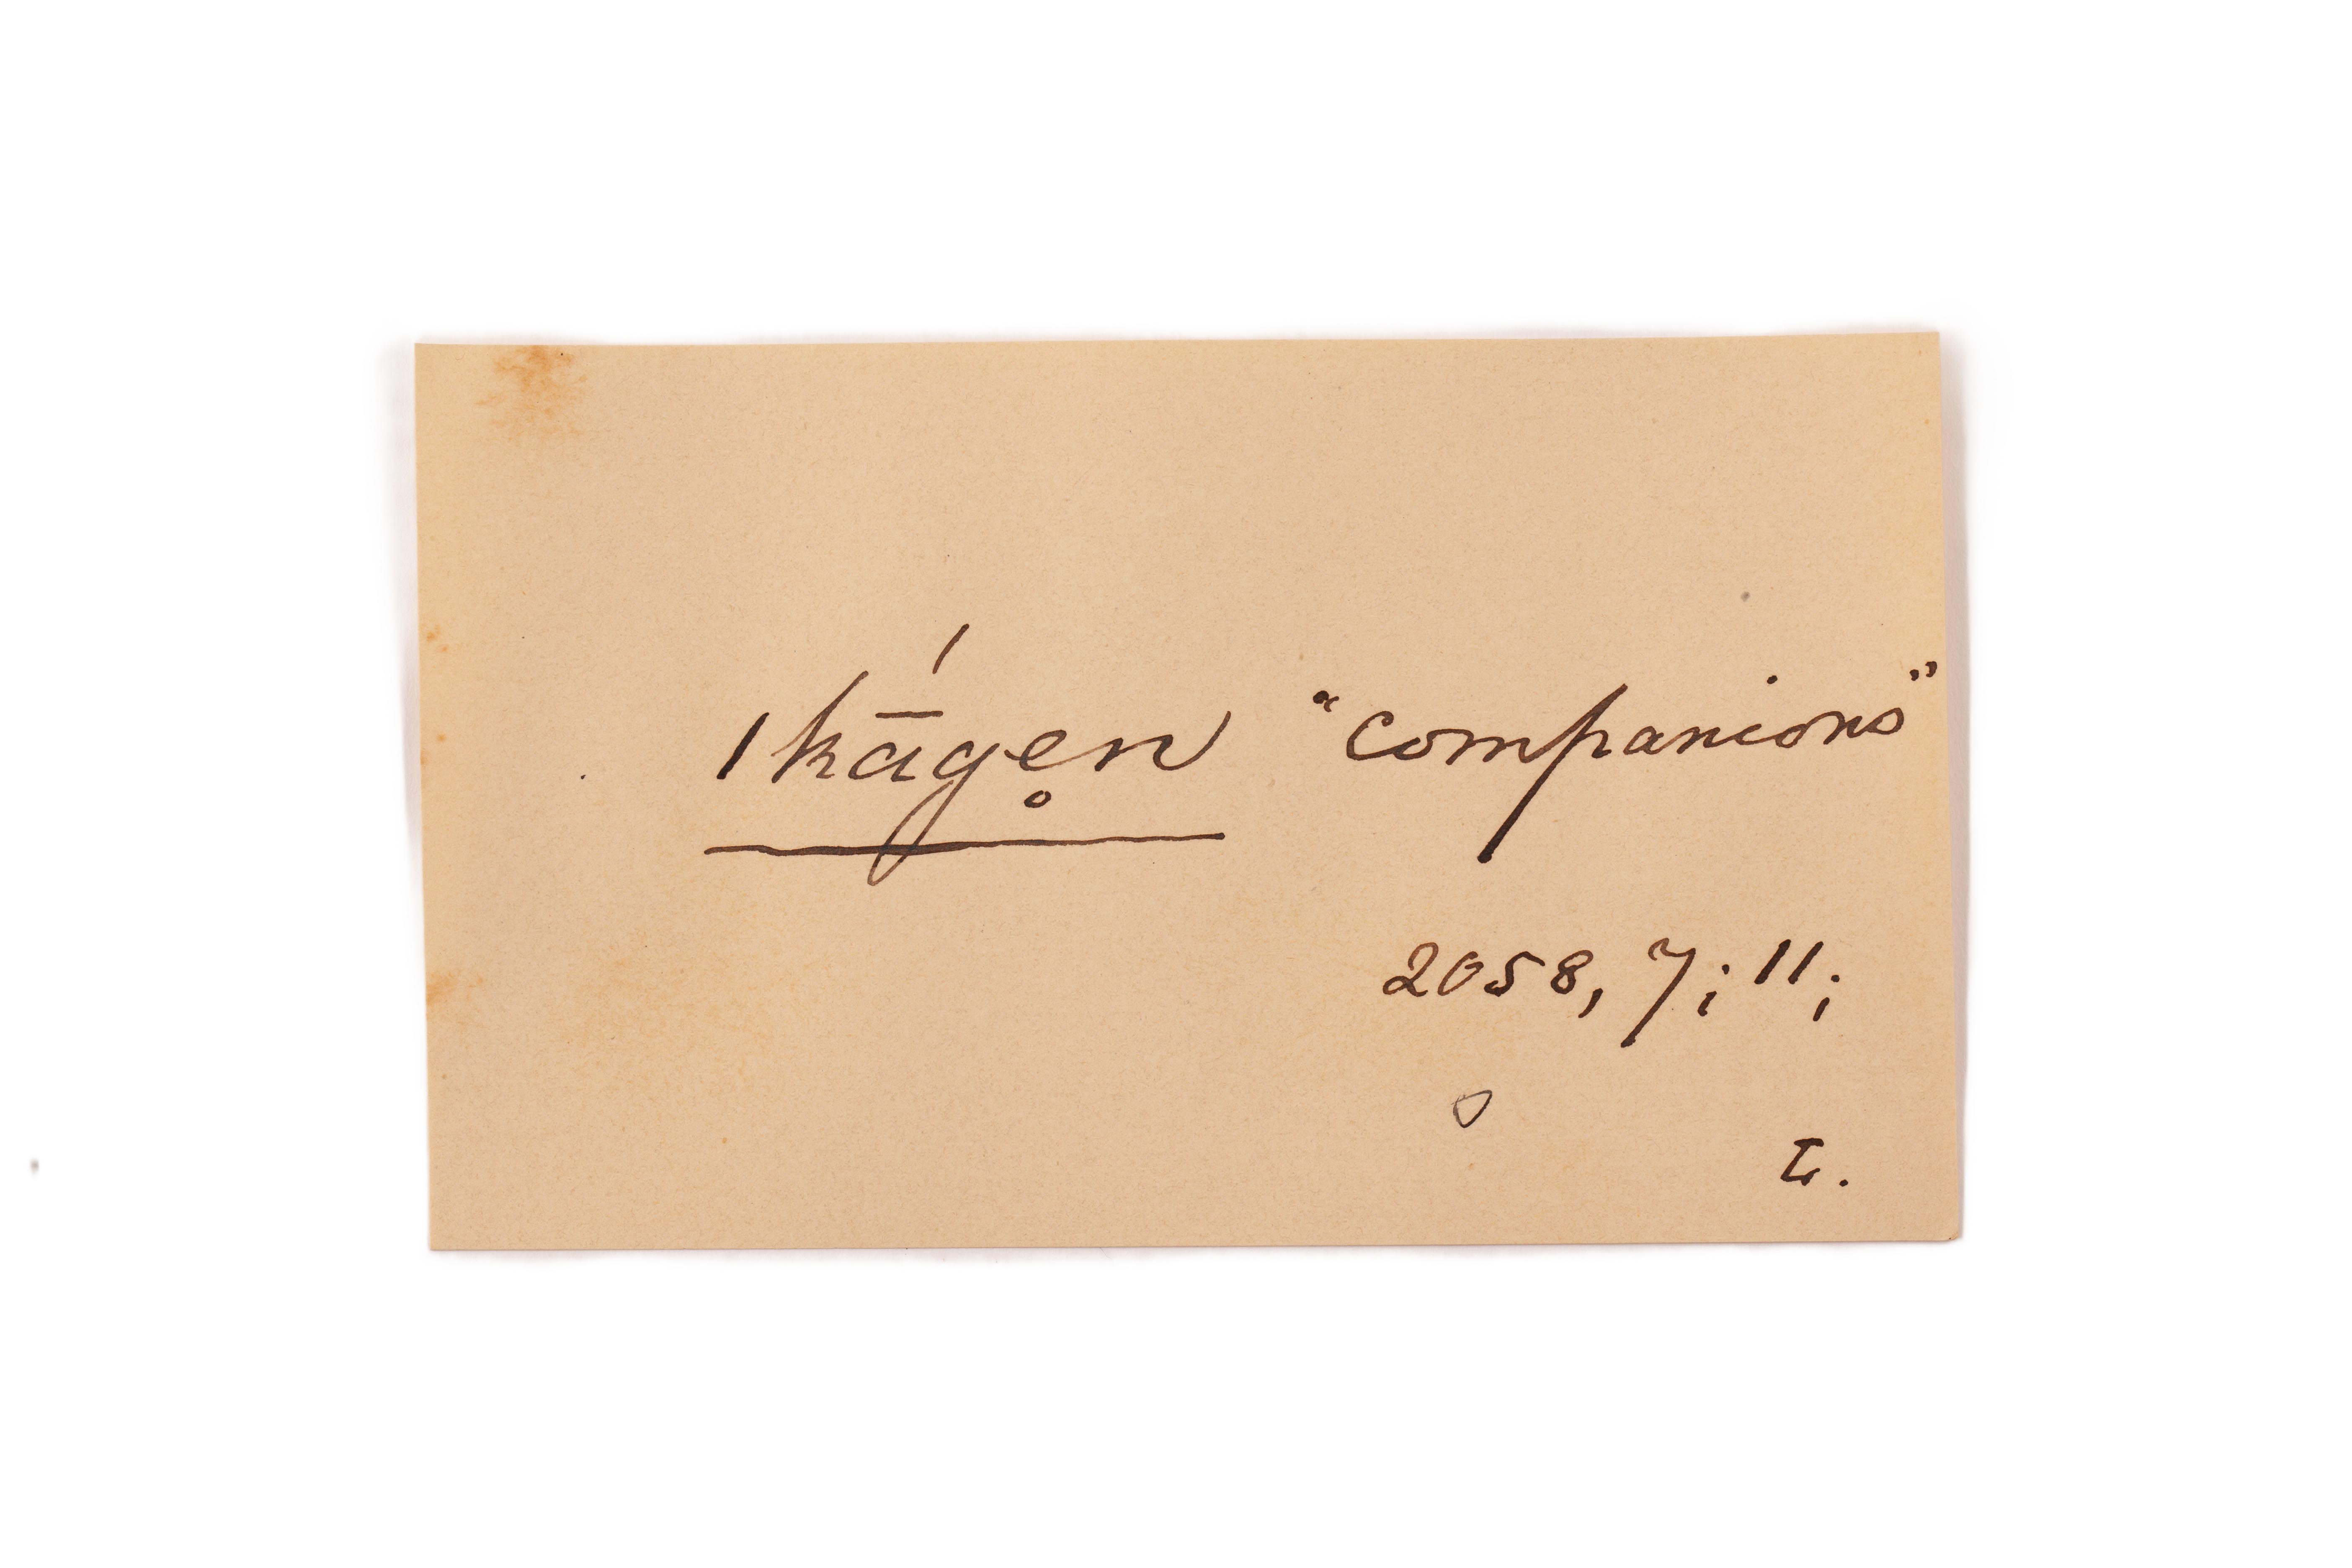 ǀkā́ge̥n “companions”
2058, 7; 11;
L.